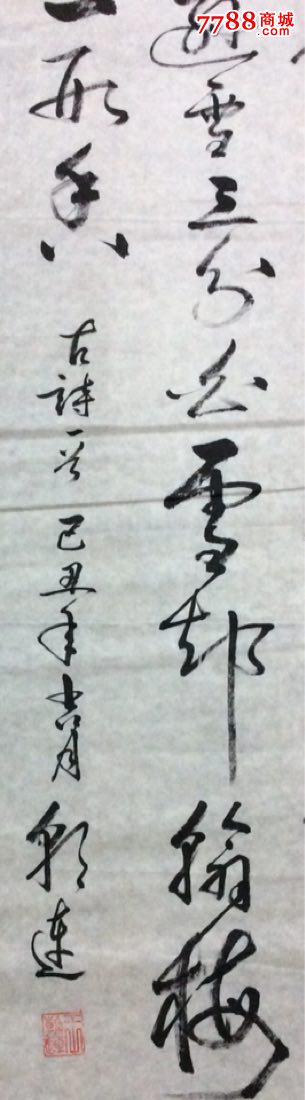 7788商城
.com
遜雪三分白雪却輸梅
一段香
古詩一首 己丑年六月